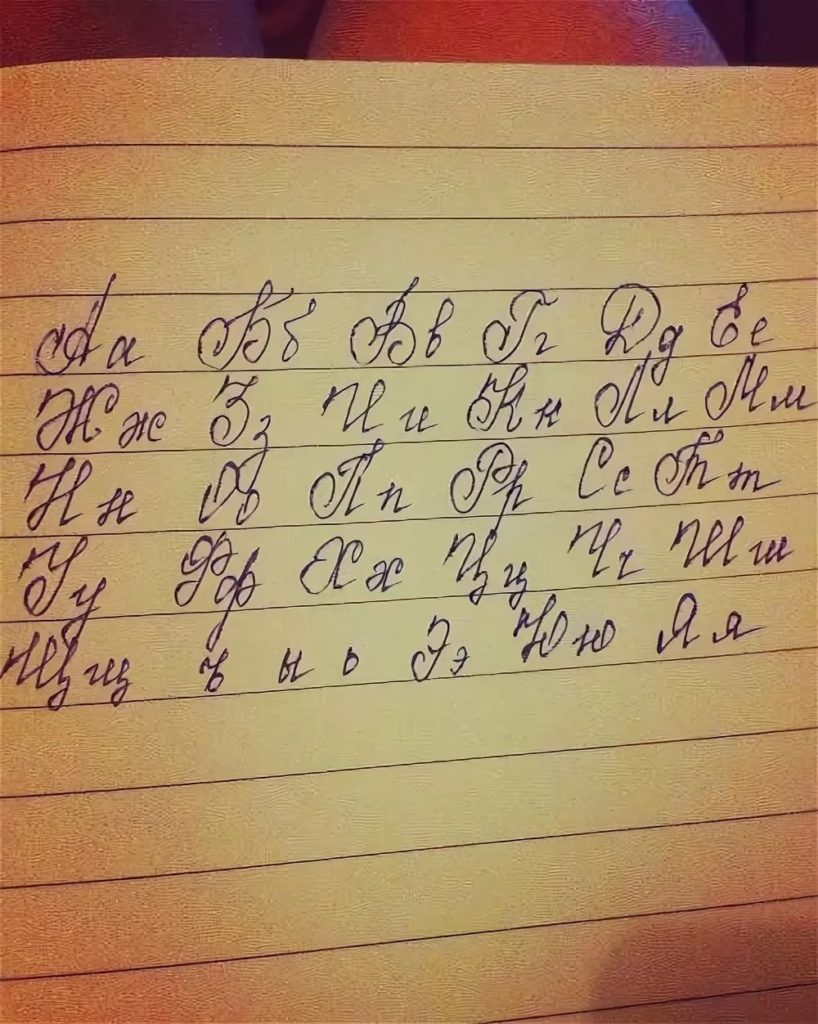 Аа Бб Вв Гг Дд Ее
Жж Зз Ии Кк Лл Мм
Нн Оо Пп Рр Сс Тт
Уу Фф Хх Цц Чч Шш
Щщ ъ ы ь Ээ Юю Яя